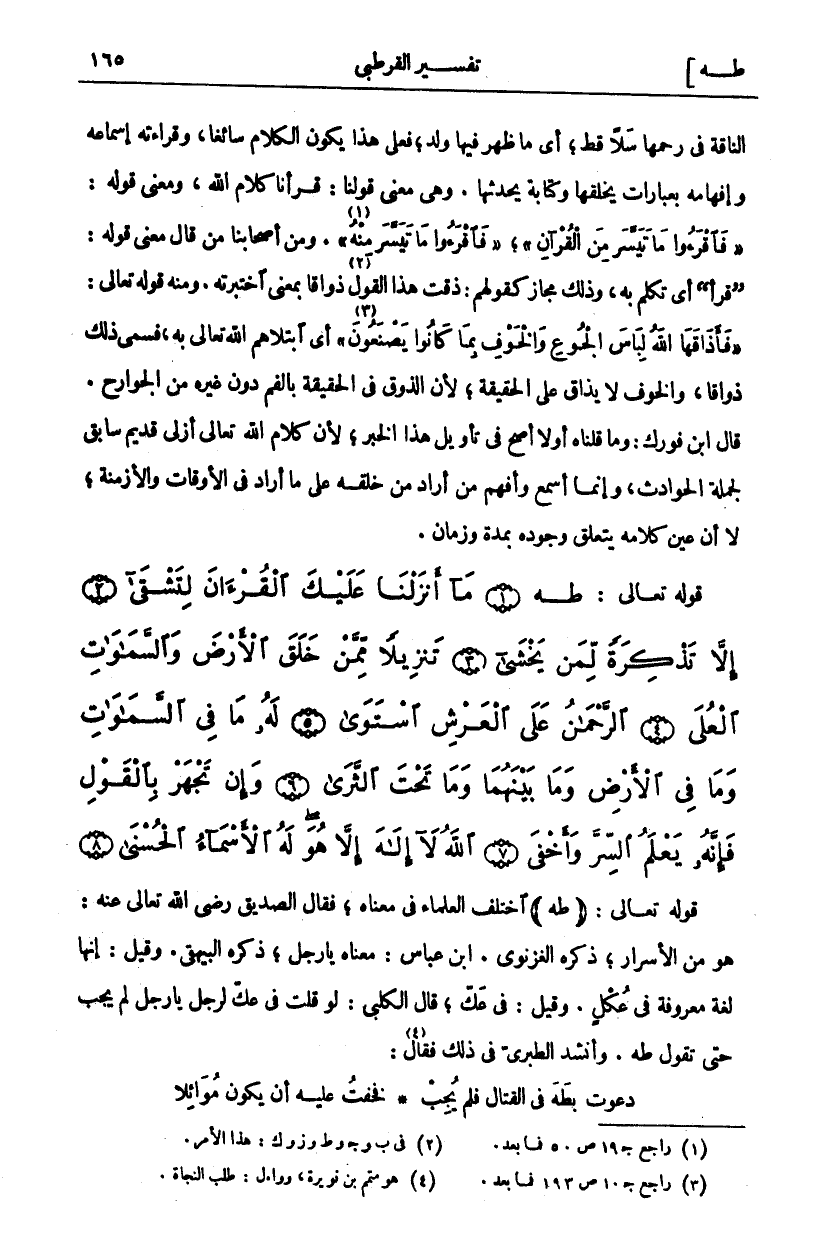 طــه ] تفســير القرطبى ١٦٥
الناقة فى رحمها سَلًا قط ؛ أى ما ظهر فيها ولد ؛ فعلى هذا يكون الكلام سائغا ، وقراءته إسماعه
و إفهامه بعبارات يخلقها وكتابة يحدثها . وهى معنى قولنا : قــرأنا كلام الله ، ومعنى قوله :
« فَٱقْرَءُوا مَا تَيَسَّرَ مِنَ الْقُرْآنِ » ؛ « فَٱقْرَءُوا مَا تَيَسَّرَ مِنْهُ(١) » . ومن أصحابنا من قال معنى قوله :
”قرأ“ أى تكلم به ، وذلك مجاز كقولهم : ذقت هذا القول(٢) ذواقا بمعنى ٱختبرته . ومنه قوله تعالى :
«فَأَذَاقَهَا اللهُ لِبَاسَ الْجُوعِ وَالْخَوْفِ بِمَا كَانُوا يَصْنَعُونَ(٣)» أى ٱبتلاهم الله تعالى به ، فسمى ذلك
ذواقا ، والخوف لا يذاق على الحقيقة ؛ لأن الذوق فى الحقيقة بالفم دون غيره من الجوارح .
قال ابن فورك : وما قلناه أولا أصح فى تأويل هذا الخبر ؛ لأن كلام الله تعالى أزلى قديم سابق
لجملة الحوادث ، و إنمــا أسمع وأفهم من أراد من خلقــه على ما أراد فى الأوقات والأزمنة ؛
لا أن عين كلامه يتعلق وجوده بمدة وزمان .
قوله تعــالى : طــه ١ مَآ أَنزَلْنَــا عَلَيْــكَ ٱلْقُــرْءَانَ لِتَشْــقَىٰٓ ٢
إِلَّا تَذْكِــرَةً لِّمَن يَخْشَىٰ ٣ تَنزِيلًا مِّمَّنْ خَلَقَ ٱلْأَرْضَ وَٱلسَّمَٰوَٰتِ
ٱلْعُلَى ٤ ٱلرَّحْمَٰنُ عَلَى ٱلْعَــرْشِ ٱسْتَــوَىٰ ٥ لَهُۥ مَا فِى ٱلسَّــمَٰوَٰتِ
وَمَا فِى ٱلْأَرْضِ وَمَا بَيْنَهُمَا وَمَا تَحْتَ ٱلثَّرَىٰ ٦ وَإِن تَجْهَرْ بِٱلْقَوْلِ
فَإِنَّهُۥ يَعْلَمُ ٱلسِّرَّ وَأَخْفَى ٧ ٱللَّهُ لَآ إِلَٰهَ إِلَّا هُوَ ۖ لَهُ ٱلْأَسْمَآءُ ٱلْحُسْنَىٰ ٨
قوله تعــالى : ( طه ) ٱختلف العلماء فى معناه ؛ فقال الصديق رضى الله تعالى عنه :
هو من الأسرار ؛ ذكره الغزنوى . ابن عباس : معناه يا رجل ؛ ذكره البيهقى . وقيل : إنها
لغة معروفة فى عُكْلٍ . وقيل : فى عَكّ ؛ قال الكلبى : لو قلت فى عكّ لرجل يا رجل لم يجب
حتى تقول طه . وأنشد الطبرىّ فى ذلك فقال(٤) :
دعوت بطَهَ فى القتال فلم يُجِبْ * فخفتُ عليــه أن يكون مُوَائِلا
(١) راجع جـ ١٩ ص ٥٠ فــا بعد . (٢) فى ب و جـ و ط و ز و ك : هذا الأمر .
(٣) راجع جـ ١٠ ص ١٩٣ فــا بعد . (٤) هو متمم بن نويرة ، وواءل : طلب النجاة .